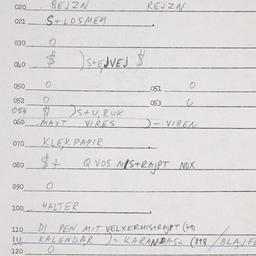 020 BEJZN REJZN
021 S+LOSMEH
030 0
040 $ )S+EJVEJ $
050 0 051 0
052 0 053 0
054 $ )S+U,RUK
060 MAYT VIRES )- VIREN
070 KLEKPAPIR
080 $+ Q VOS MIS+RAJPT NOX
090 0
100 HALTER
110 DI PEN MIT VELXERMIS+RAJPT
111 KALENDAR )= KARANDAS= (898 / BLAJFE
120 0